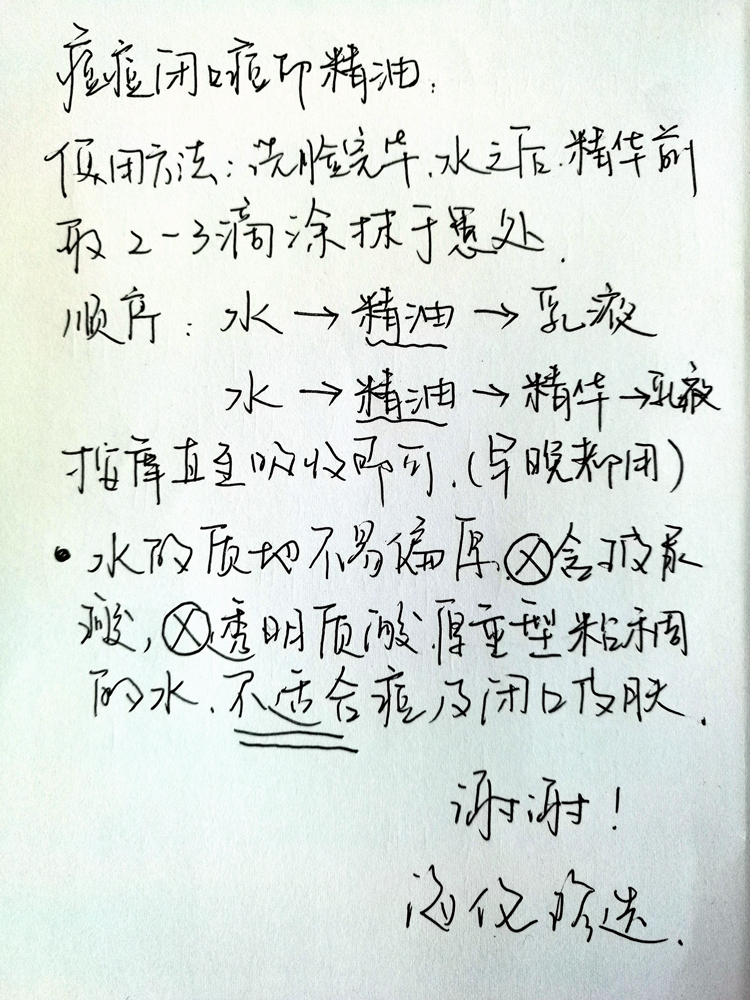 痘痘闭口痘印精油：
使用方法：洗脸完毕，水之后，精华前
取2-3滴涂抹于患处。
顺序：水→精油→乳液
水→精油→精华→乳液
按摩直至吸收即可。（早晚都用）
• 水的质地不易偏厚，Ⓧ含玻尿
酸，Ⓧ透明质酸，厚重型粘稠
的水，不适合痘及闭口皮肤。
谢谢！
珍选。